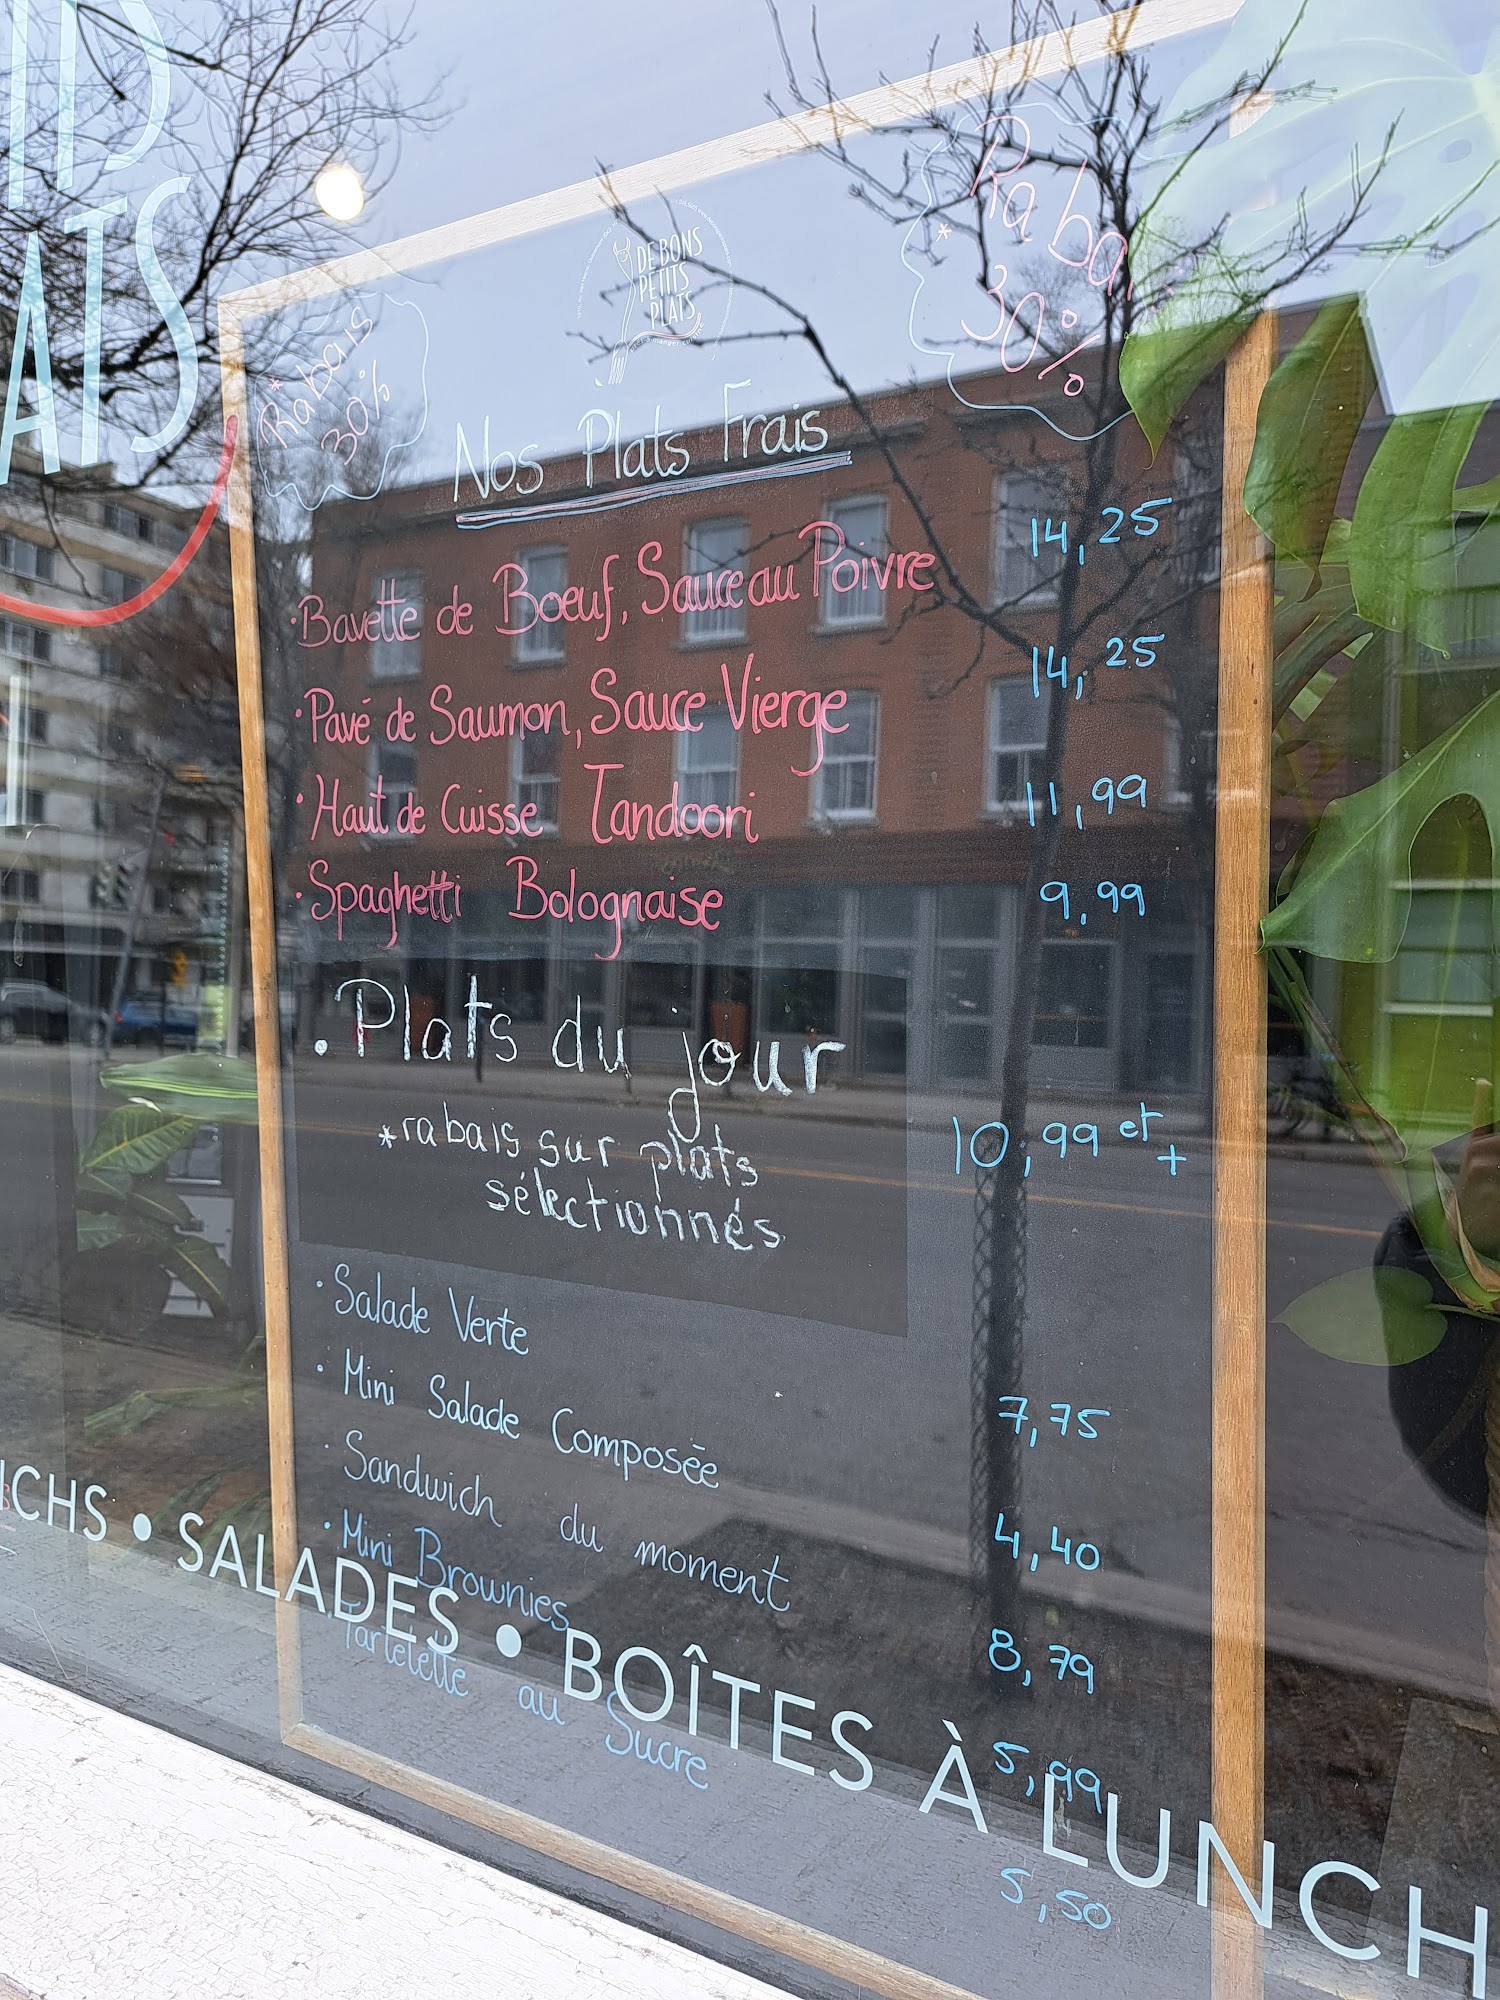 ATS
Rabais
*
30%
DE BONS
PETITS
PLATS
prêt-à-manger cuisiné
Rabais
*
30%
Nos Plats Frais
· Bavette de Boeuf, Sauce au Poivre 14,25
· Pavé de Saumon, Sauce Vierge 14,25
· Haut de Cuisse Tandoori 11,99
· Spaghetti Bolognaise 9,99
. Plats du jour 10,99 et +
*rabais sur plats
sélectionnés
· Salade Verte 7,75
· Mini Salade Composée 4,40
· Sandwich du moment 8,79
· Mini Brownies 5,99
· Tartelette au Sucre 5,50
ICHS • SALADES • BOÎTES À LUNCH